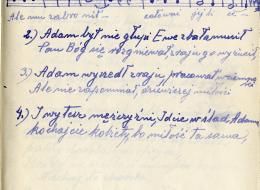 Ale mu zabronił — całować jij
2.) Adam był nie głupi Ewe zbałamucił
Pan Bóg się rozgniewał z raju go wyrzucił
3.) Adam wyszedł z raju, pracował
Ale nie zapomniał miłości
4.) I wy też mężczyźni, Idcie w ślad Adama
kochajcie kobiety bo miłość ta sama,